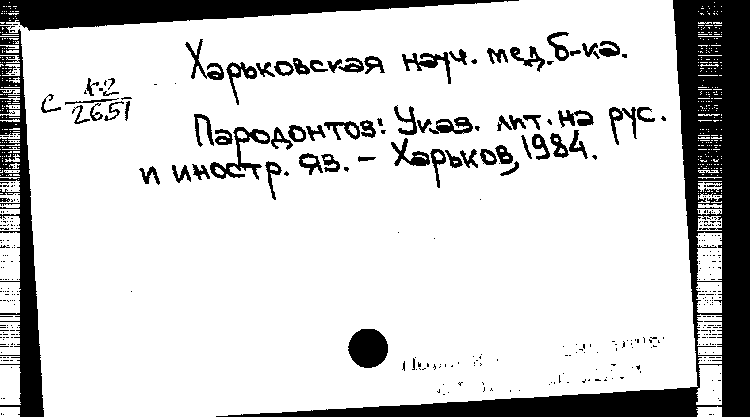 Харьковская науч. мед. б-ка.
С К-2
2651
Пародонтоз: Указ. лит. на рус.
и иностр. яз. – Харьков, 1984.